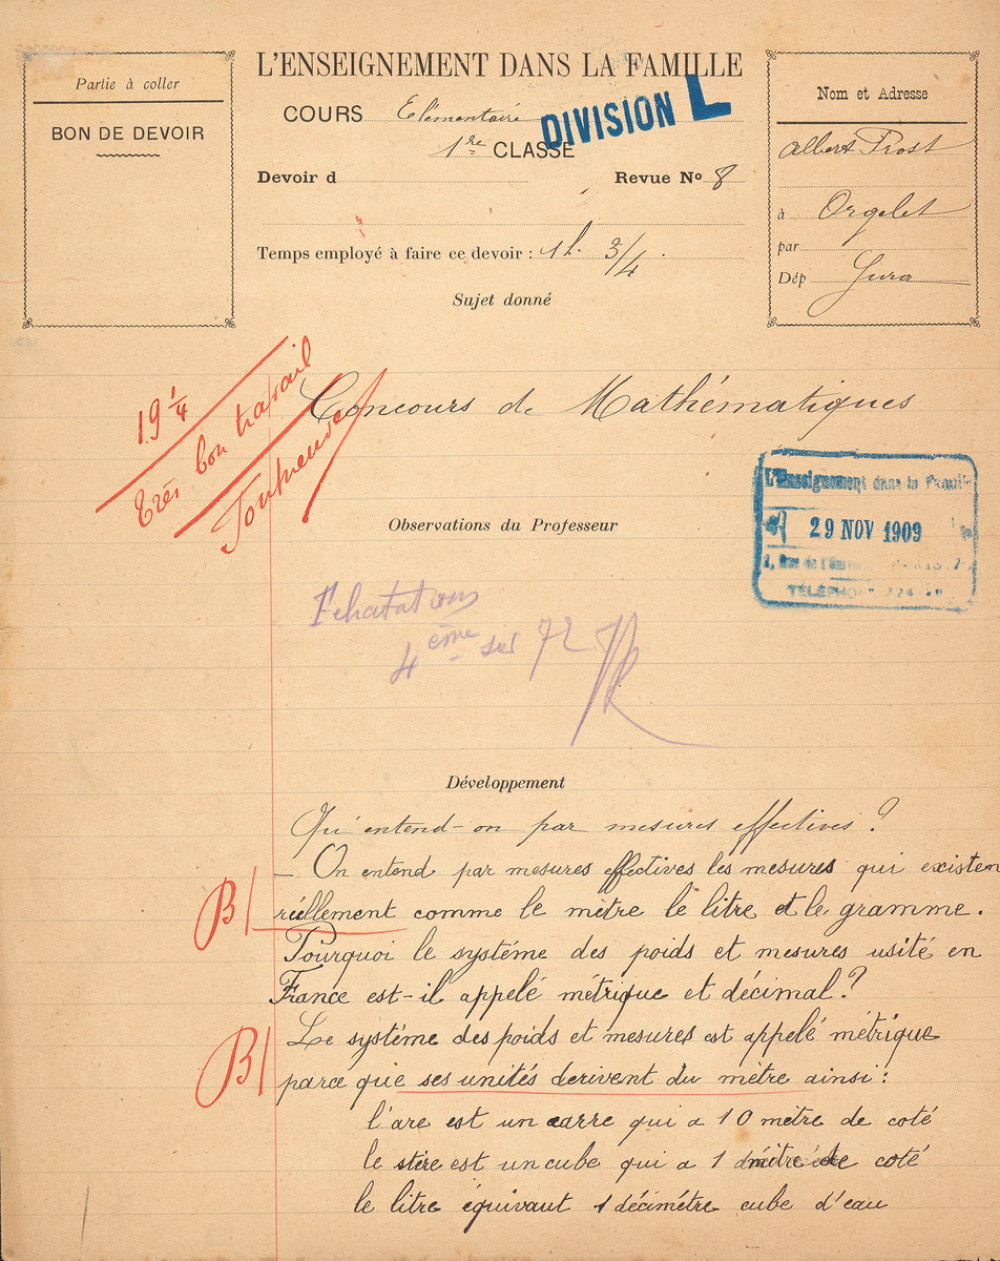 Partie à coller
BON DE DEVOIR
L'ENSEIGNEMENT DANS LA FAMILLE
COURS Elémentaire
DIVISION L
1re CLASSE
Devoir d
Revue No 8
Temps employé à faire ce devoir : 1 h. 3/4.
Sujet donné
Nom et Adresse
Albert Prost
à Orgelet
par
Dép Jura
19 1/4
Très bon travail
Concours de Mathématiques
L'Enseignement dans la Famille
29 NOV 1909
TÉLÉPHONE
Observations du Professeur
Félicitations
4ème sur 72
Développement
Qu'entend-on par mesures effectives ?
— On entend par mesures effectives les mesures qui existen
B/ réellement comme le mètre le litre et le gramme.
Pourquoi le systéme des poids et mesures usité en
France est-il appelé métrique et décimal ?
Le systéme des poids et mesures est appelé métrique
B/ parce que ses unités derivent du mètre ainsi :
l'are est un carre qui a 10 mètre de coté
le stère est un cube qui a 1 mètre de coté
le litre équivaut 1 décimétre cube d'eau